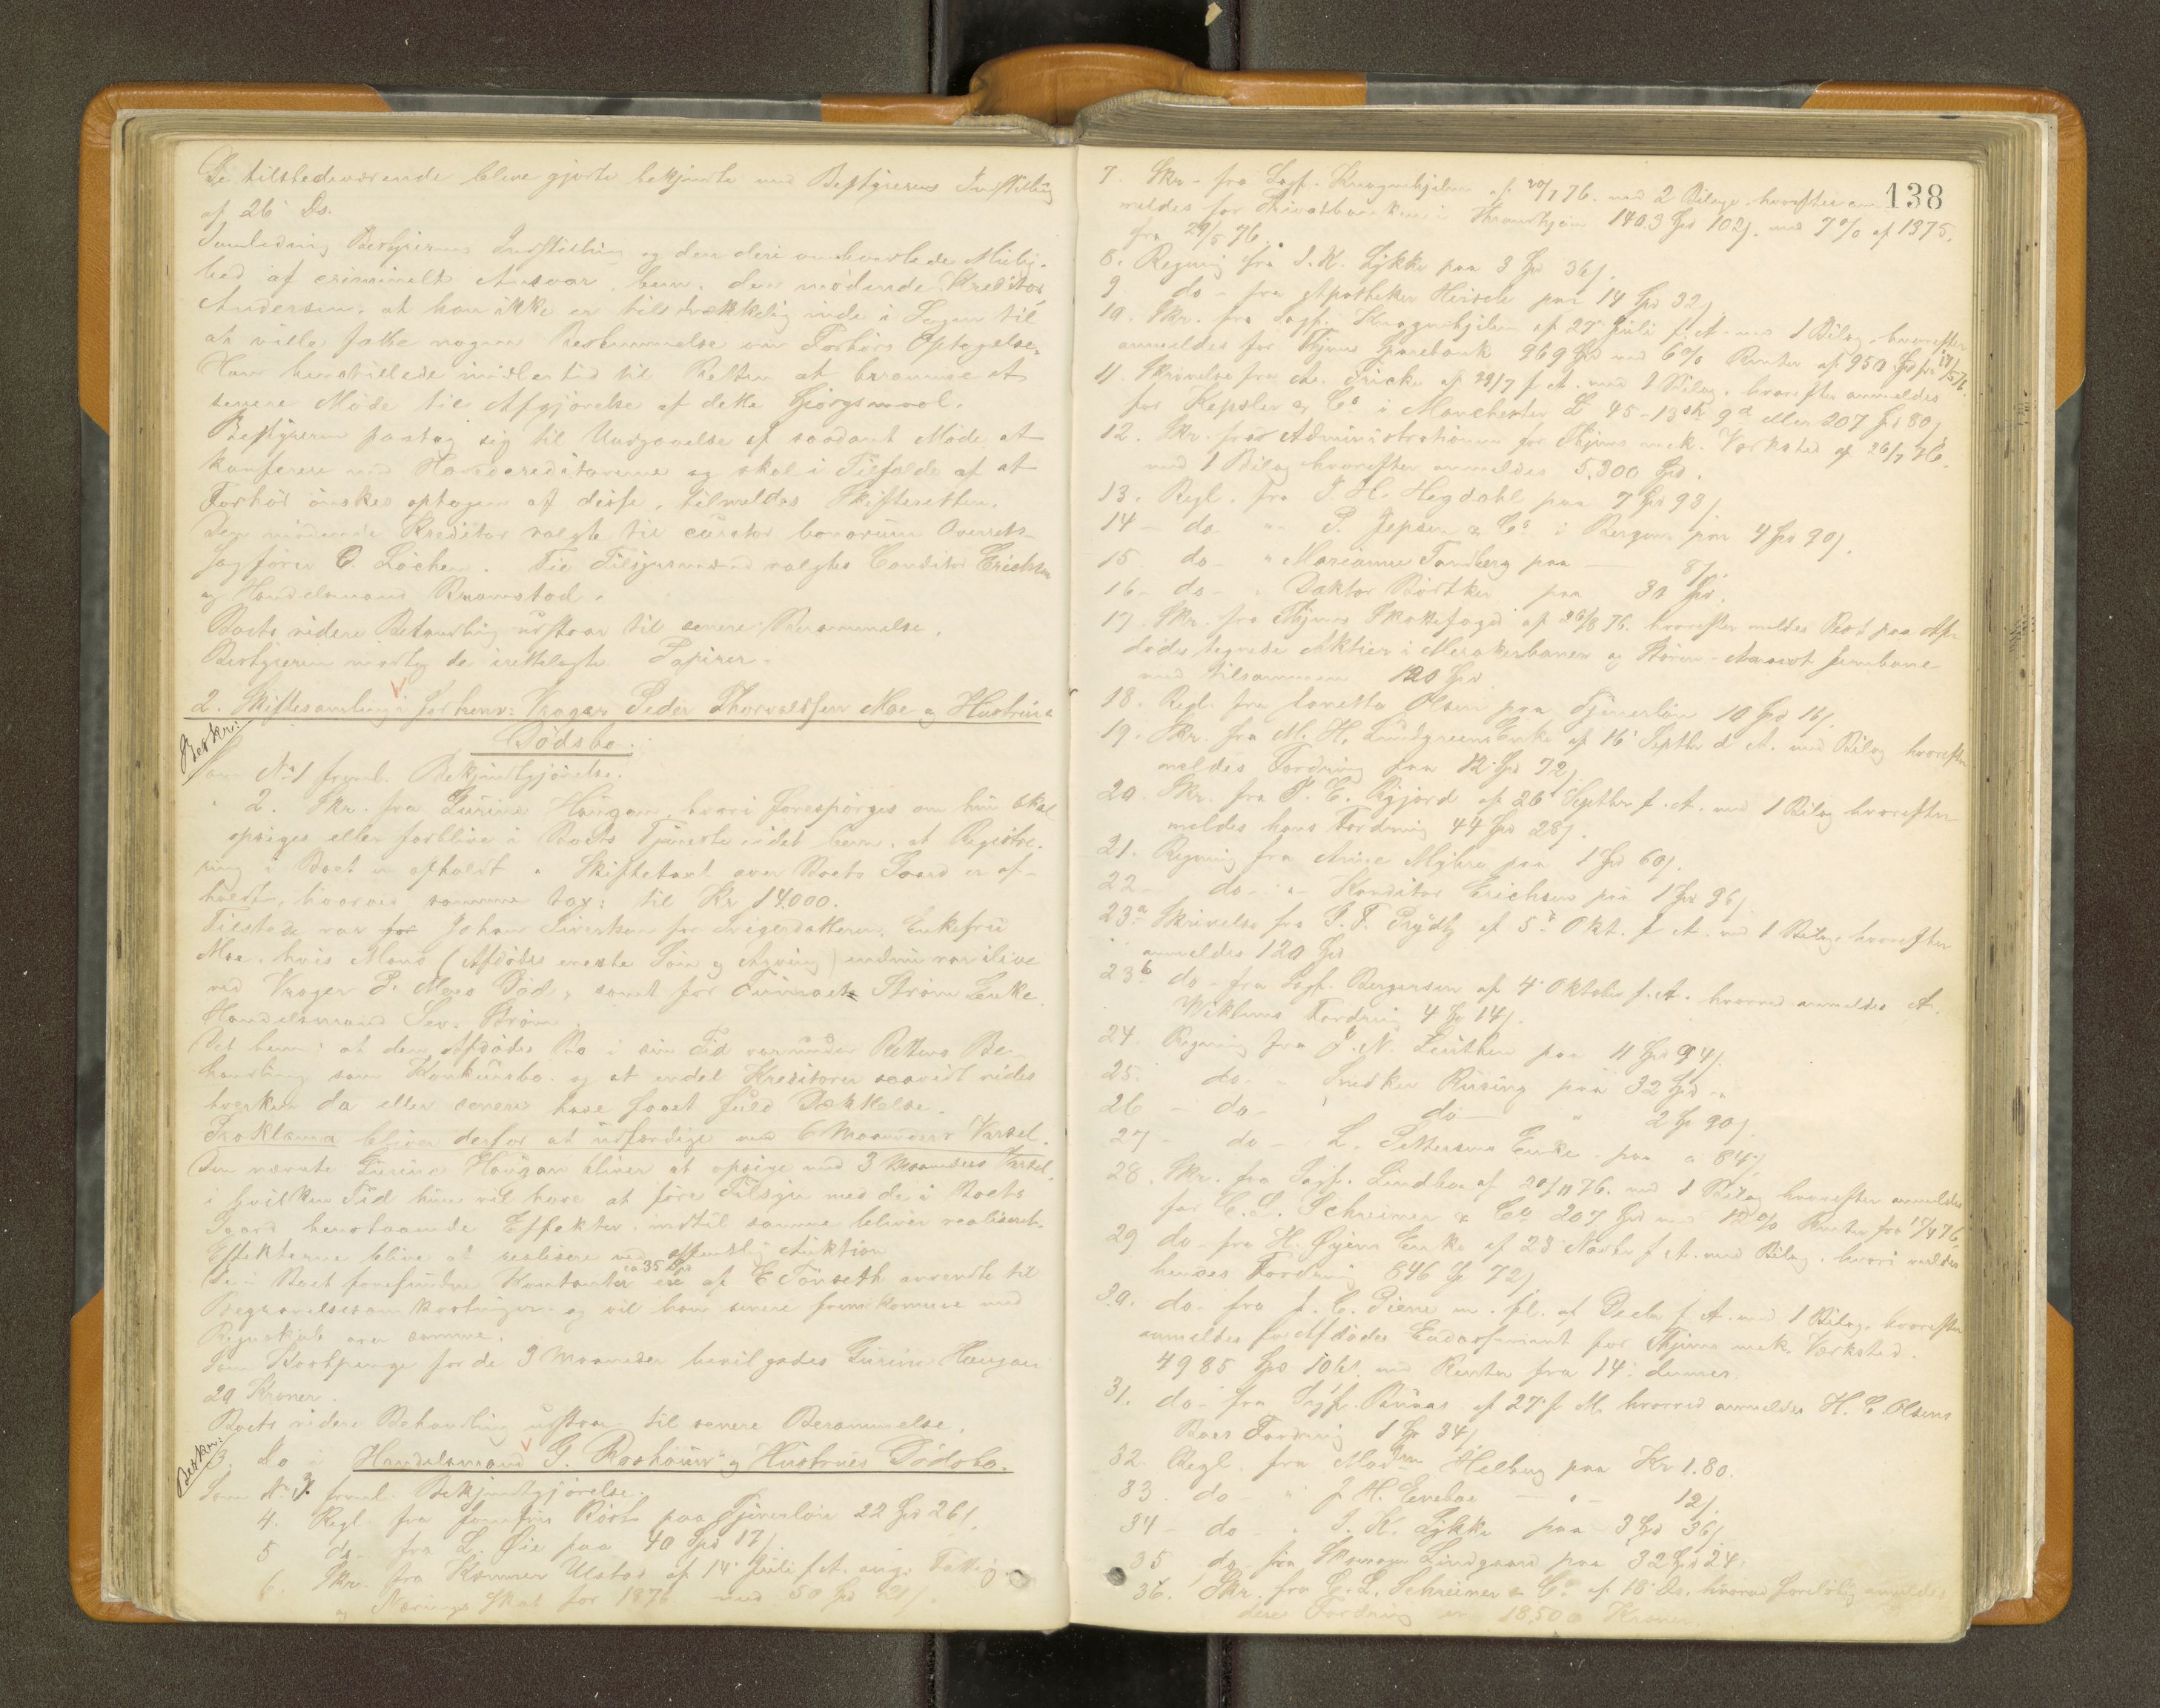 De tilstedeværende bleve gjorte bekjendte med Bestyrerens Indstilling
af 26 ds.
I Anledning Bestyrerens Indstilling og den deri omhandlede Mulig-
hed af criminelt Ansvar bem. den mødende Kreditor
Andersen, at han ikke er tilstrækkelig inde i Sagen til
at ville fatte nogen Bestemmelse om Forhørs Optagelse.
Han henstillede imidlertid til Retten at berammes et
senere Møde til Afgjørelse af dette Spørgsmaal.
Bestyreren paatog sig til Undgaaelse af saadant Møde at
konferere med Hovedcreditorerne og skal i Tilfælde af at
Forhør ønskes optagen af disse, tilmeldes Skifteretten.
Den mødende Kreditor valgte til curator bonorum Overrets-
sagfører O. Løchen. Til Tilsynsmænd valgtes Conditor Erichsen
og Handelsmand Bramstad.
Boets videre Behandling udstaar til senere Berammelse.
Bestyreren modtog de irettelagte Papirer.
2. Skiftesamling i forhenv: Vrager Peder Thorvaldsen Moe og Hustrues
Dødsbo.
Beskr:
Som No 1 freml. Bekjendtgjørelse.
" 2. Skr. fra Gurine Haugan, hvori forespørges om hun skal
opsiges eller forblive i Boets Tjeneste idet bem. at Registre-
ring i Boet er afholdt. Skiftetaxt over Boets Gaard er af-
holdt, hvorved samme tax: til Kr 14.000.
Tilstede var for Johan Siverksen for Svigerdatteren, Enkefru
Moe, hvis Mand (Afdødes eneste Søn og Arving) endnu var ilive
ved Vrager P. Moes Død, samt for Strøm Enke
Handelsmand Sev. Strøm.
Det bem: at den Afdødes Bo i sin Tid var under Rettens Be-
handling som Konkursbo og at endel Kreditorer saavidt vides
hverken da eller senere have faaet fuld Dækkelse.
Proklama bliver derfor at udfærdige med 6 Maaneders Varsel.
Den nævnte Gurine Haugan bliver at opsige med 3 Maaneders Varsel,
i hvilken Tid hun vil have at føre Tilsyn med de i Boets
Gaard henstaaende Effekter, indtil samme bliver realiseret.
Effekterne blive at realisere ved offentlig Auktion
De i Boet forefundne Kontanter ca 35 Spd ere af E Tønseth anvendte til
Begravelsesomkostninger og vil han senere fremkomme med
Regnskab over samme.
Som Kostpenge for de 3 Maaneder bevilgedes Gurine Haugan
20 Kroner.
Boets videre Behandling udstaar til senere Berammelse.
Beskr:
3. Do i Handelsmand G. Roshauw og Hustrues Dødsbo.
Som No 3 freml. Bekjendtgjørelse.
4. Regl. fra Jomfru Røst paa Tjenerløn 22 Spd 26ß.
5 do- fra L. Øie paa 40 Spd 17ß.
6. Skr. fra Kæmner Ulstad af 14' Juli f. A. ang. Fattig-
og Nærings Skat for 1876 med 50 Spd 21ß.
138
7. Skr. fra Sagf. Kragnehjelm af 20/7 76. med 2 Bilage, hvorefter an-
meldes for Privatbanken i Throndhjem 1403 Spd 102ß. med 7% af 1375.
fra 29/5 76.
8. Regning fra I. K. Lykke paa 3 Spd 36ß.
9 do- fra Apotheker Hirsch paa 14 Spd 32ß
10. Skr. fra Sagf. Kragnehjelm af 27' Juli f. A. med 1 Bilag, hvorefter
anmeldes for Thjems Sparebank 969 Spd med 6% Renter af 950 Spd fra
11. Skrivelse fra Ar. Fricke af 29/7 f. A. med 1 Bilag, hvorefter anmeldes
for Kessler & Co i Manchester £ 45-13sh 9d eller 207 Spd 80ß.
12. Skr. fra Administrationen for Thjems mek. Værksted af 26/7 76.
med 1 Bilag hvorefter anmeldes 5.300 Spd.
13. Regl. fra J. H. Hegdahl paa 7 Spd 93ß
14 - do " P. Jepsen & Co i Bergen paa 4 Spd 90ß.
15 do " Marianne Tandberg paa — 8ß.
16- do- " Doktor Bødtker paa 30 Spd.
17. Skr. fra Thjems Skattefoged af 26/8 76. hvorefter meldes Rest paa Af-
dødes tegnede Aktier i Merakerbanen og Støren-Aamot Jernbane
med tilsammen 120 Spd
18. Regl. fra Loretta Olsen paa Tjenerløn 10 Spd 16ß.
19. Skr. fra M. H. Lundgreens Enke af 16' Septbr d. A. med Bilag hvorefter
meldes Fordring paa 12 Spd 72ß.
20. Skr. fra P. E. Rygjord af 26' Septbr f. A. med 1 Bilag hvorefter
meldes hans Fordring 44 Spd 28ß.
21. Regning fra Anne Myhre paa 1 Spd 60ß.
22- do- "- Konditor Erichsen paa 1 Spd 96ß
23a Skrivelse fra G. F. Prydtz af 5' Okt. f. A. med 1 Bilag, hvorefter
anmeldes 120 Spd
23b do- fra Sagf. Bergersen af 4' Oktober f. A. hvorved anmeldes A.
Wiklunds Fordring 4 Spd 14ß.
24. Regning fra J. N. Leuthen paa 11 Spd 94ß.
25. do- " Snedker Rusing paa 32 Spd - "
26 - do- " do - " 2 Sp 90ß.
27 - do- L. Pettersens Enke paa " 84ß.
28. Skr. fra Sagf. Lindboe af 20/11 76. med 1 Bilag hvorefter anmeldes
for C. L. Schreiner & Co 207 Spd med 12% Renter fra 15/4 76
29 do fra H. Øyens Enke af 28' Novbr f. A. med Bilag, hvori meldes
hendes Fordring 846 Sp 72ß
30. do- fra J. C. Piene m. fl. af Decbr f. A. med 1 Bilag, hvorefter
anmeldes for Afdødes Endossement for Thjems mek. Værksted.
4985 Spd 10ß. med Renter fra 14: dennes.
31. do- fra Sagf. Bünaas af 27' f. M. hvorved anmeldes H. C. Olsens
Boes Fordring 1 Sp 34ß
32. Regl. fra Madm Helberg paa Kr 1.80.
33. do- " J H. Eneboe - " - 12ß.
34 - do- " I. K. Lykke paa 3 Spd 36ß
35 do fra Skomager Lindgaard paa 32 Spd 24.
36. Skr. fra C. L. Schreiner & Co af 18' ds. hvorved foreløbig anmeldes
deres Fordring er 18,500 Kroner.